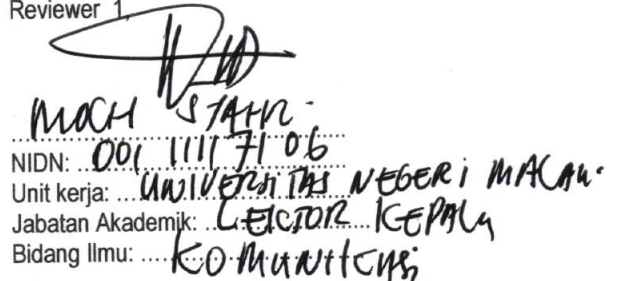 Reviewer 1
MOCH SYAHRI
NIDN: 0011117106
Unit kerja: UNIVERSITAS NEGERI MALANG
Jabatan Akademik: LEKTOR KEPALA
Bidang Ilmu: KOMUNIKASI